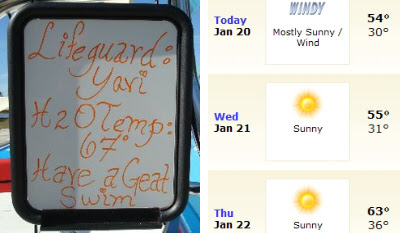 Lifeguard:
Yavi
H2O Temp:
67°
Have a Geat
Swim
WINDY
Today
Jan 20
Mostly Sunny /
Wind
54°
30°
Wed
Jan 21
Sunny
55°
31°
Thu
Jan 22
Sunny
63°
36°